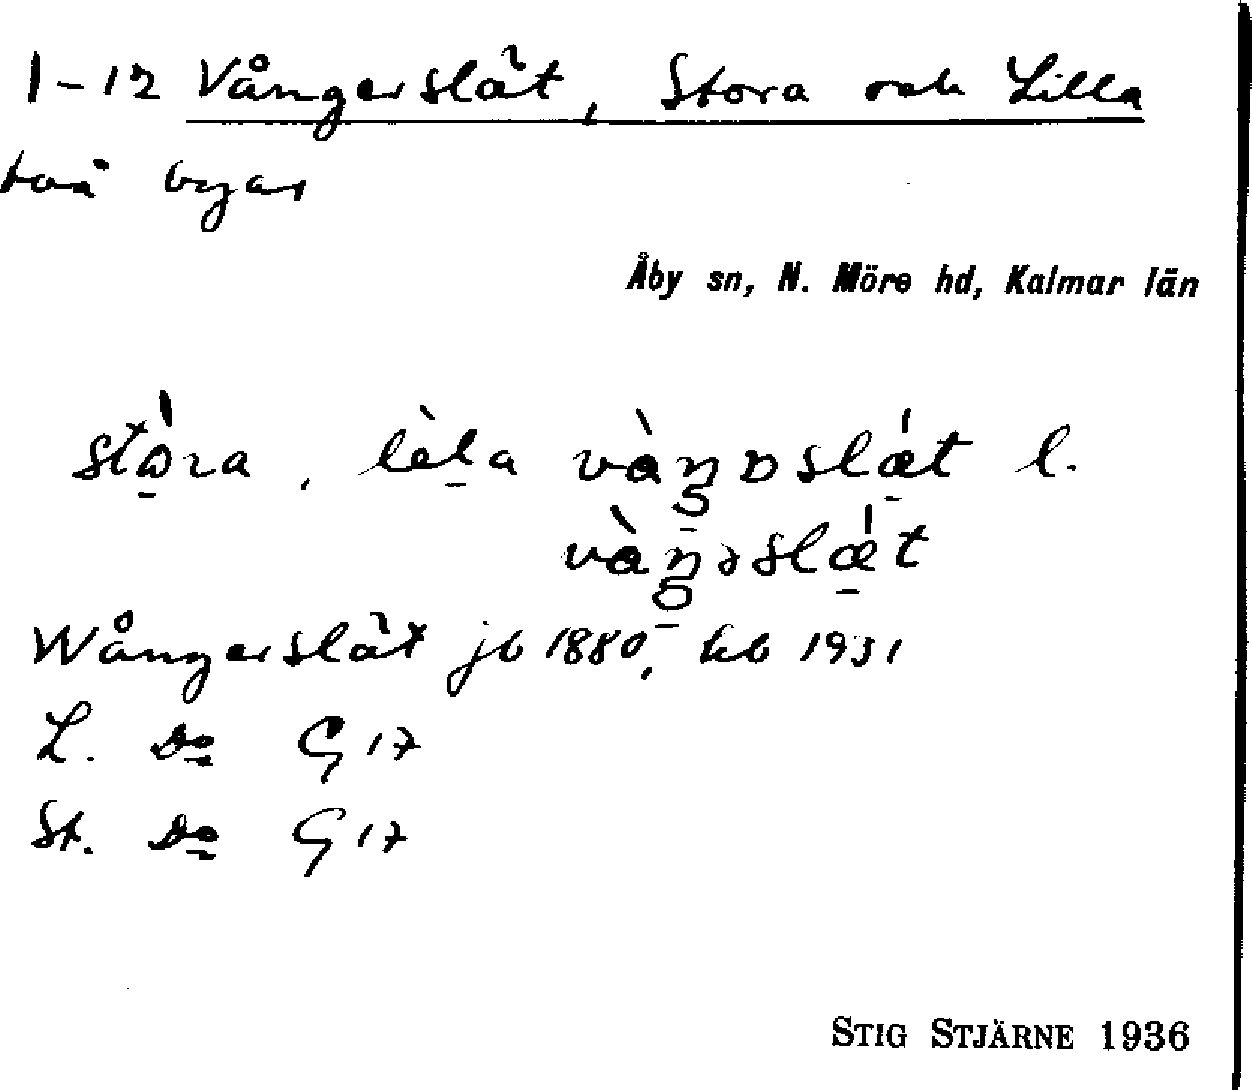 1-12 Vångerslät, Stora och Lilla
två byar
Åby sn, N. Möre hd, Kalmar län
stòra, lèla vàŋɒslǽt l.
vàŋəslǽt
Wångerslät jb 1880, kb 1931
L. Do G 17
St. Do G 17
STIG STJÄRNE 1936